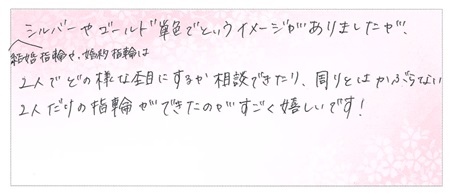 シルバーやゴールド単色でというイメージがありましたが、
結婚指輪や、婚約指輪は
2人でどの様な杢目にするか相談できたり、周りとはかぶらない
2人だけの指輪ができたのがすごく嬉しいです！